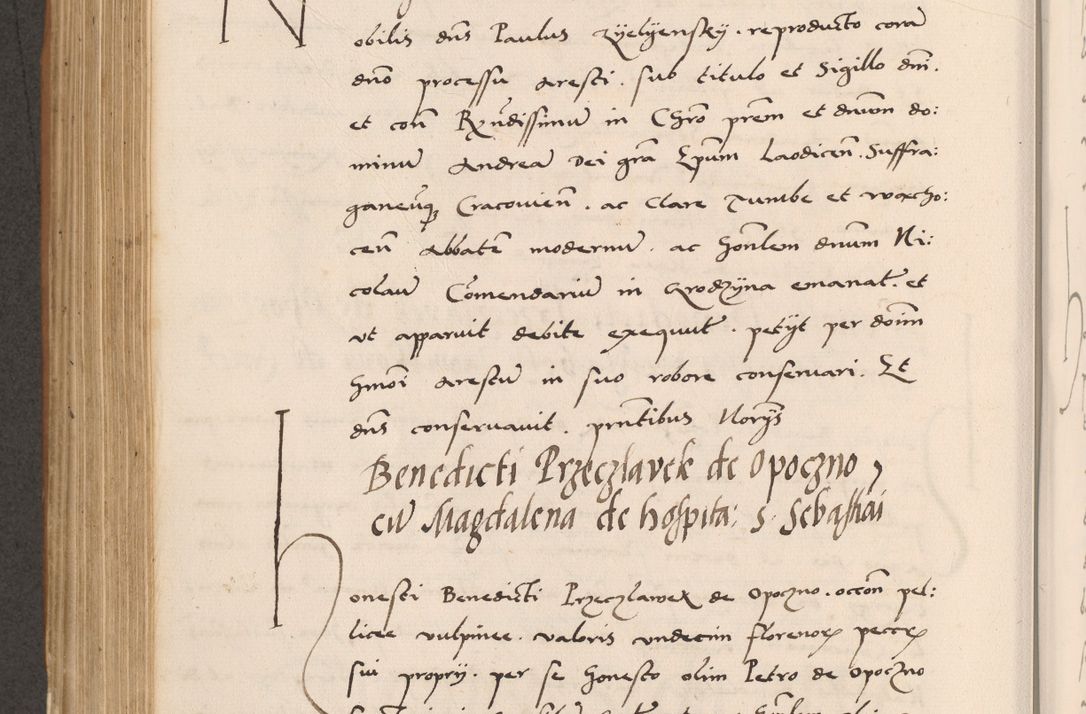 Nobilis dns Paulus Zyelyensky. reproducto cora
dno processu Aresti. sub titulo et Sigillo dni.
et con Rxndissimu in Chro prem et dnum do:
minu Andrea Dei gra Epum Laodicen. Suffra:
ganeuq Cracouien. ac Clare Tumbe et wacho:
cen Abbate modernu. ac honlem dnum Ni:
colau Comendariu in Grodzyna emanat. et
ut apparuit debite exequut. petyt per doim
hmoi Arestu in suo robore conseruari. Et
dns conseruauit. pntibus Norys
Benedicti Przeczlavek de Opoczno
cu Magdalena de hospita: S. Sebastiai
Honesti Benedicti Przeczlawek de Opoczno. occon pel:
licee vulpinee. valoris vndecim florenor peccr
sui proprij. per se honesto olim Petro de Opoczno